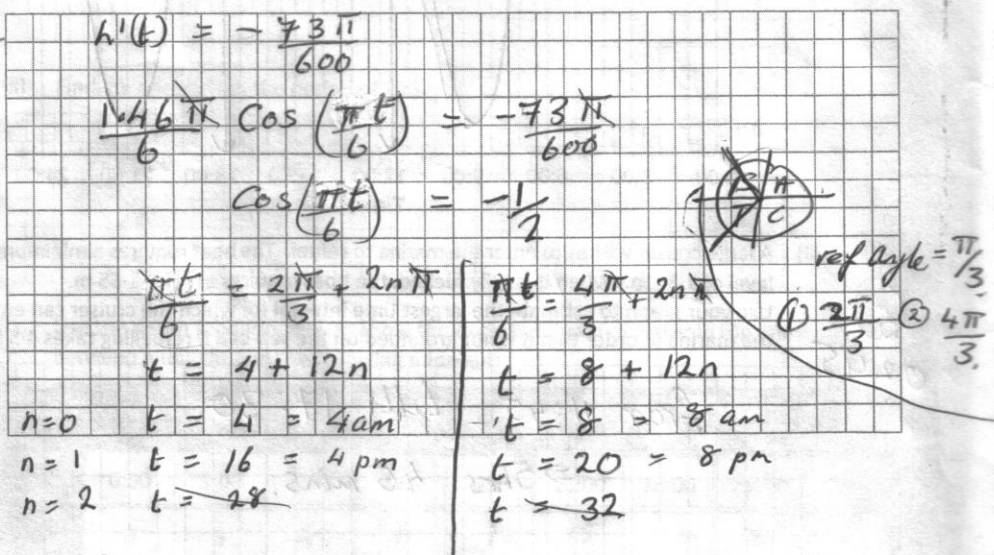 h'(t) = - 73π/600
1.46π/6 Cos (πt/6) = - 73π/600
Cos (πt/6) = - 1/2
S A
T C
ref angle = π/3.
① 2π/3 ② 4π/3.
πt/6 = 2π/3 + 2nπ
t = 4 + 12n
n=0 t = 4 = 4am
n=1 t = 16 = 4 pm
n=2 t = 28
πt/6 = 4π/3 + 2nπ
t = 8 + 12n
t = 8 = 8 am
t = 20 = 8 pm
t = 32